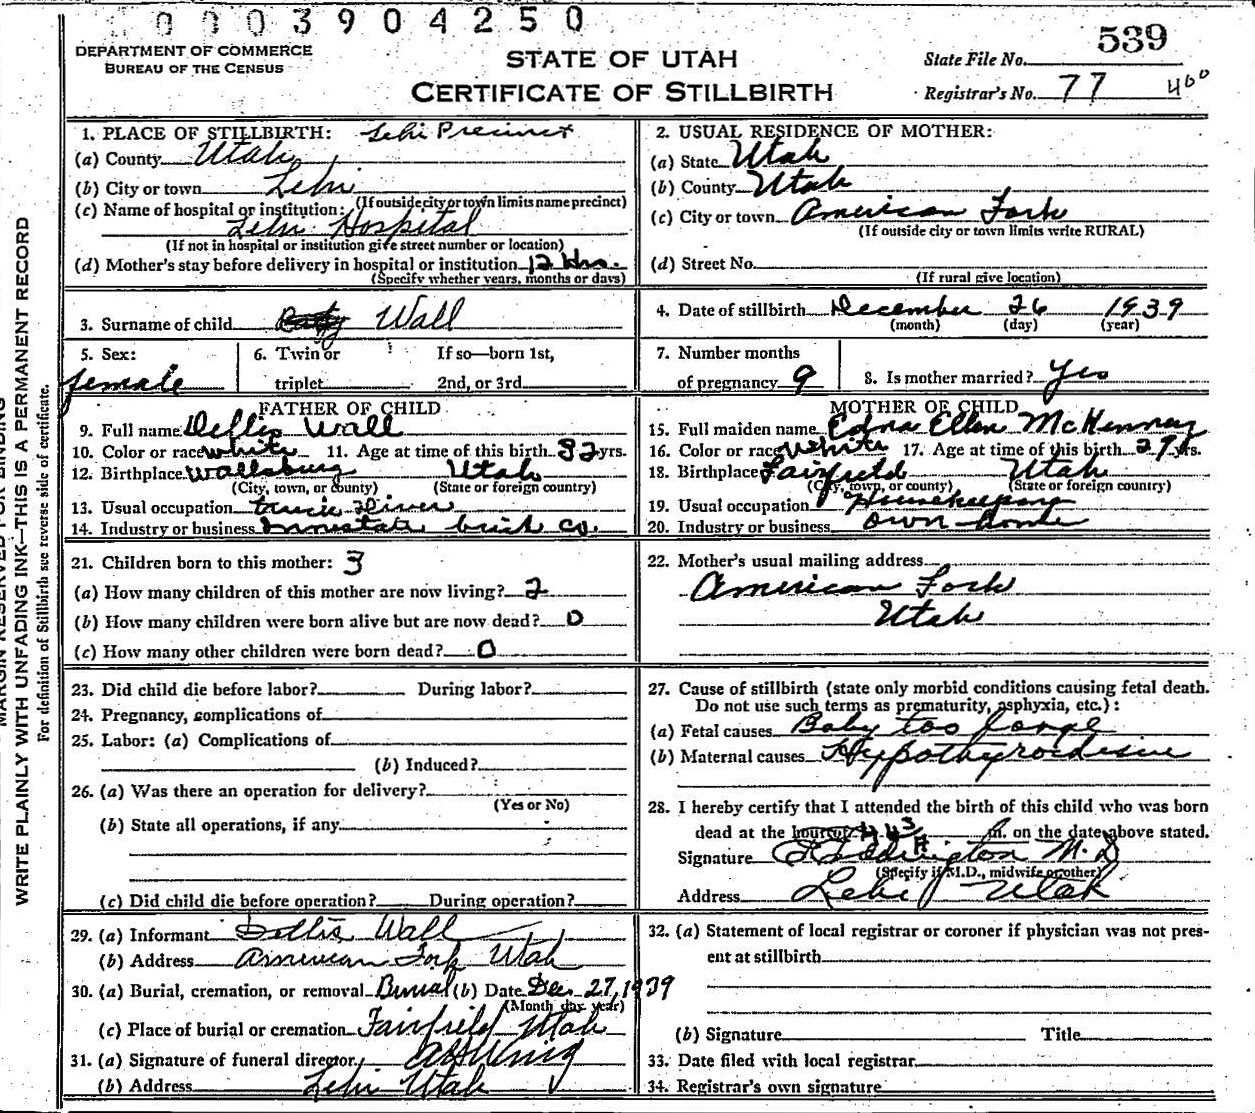 0003904250
DEPARTMENT OF COMMERCE
BUREAU OF THE CENSUS
STATE OF UTAH
CERTIFICATE OF STILLBIRTH
State File No. 539
Registrar's No. 77 400
MARGIN RESERVED FOR BINDING
WRITE PLAINLY WITH UNFADING INK—THIS IS A PERMANENT RECORD
For definition of Stillbirth see reverse side of certificate.
1. PLACE OF STILLBIRTH: Lehi Precinct
(a) County Utah
(b) City or town Lehi
(If outside city or town limits name precinct)
(c) Name of hospital or institution:
Lehi Hospital
(If not in hospital or institution give street number or location)
(d) Mother's stay before delivery in hospital or institution 12 Hrs.
(Specify whether years, months or days)
2. USUAL RESIDENCE OF MOTHER:
(a) State Utah
(b) County Utah
(c) City or town American Fork
(If outside city or town limits write RURAL)
(d) Street No.
(If rural give location)
3. Surname of child Wall
4. Date of stillbirth December 26 1939
(month) (day) (year)
5. Sex:
female
6. Twin or
triplet
If so—born 1st,
2nd, or 3rd
7. Number months
of pregnancy 9
8. Is mother married? Yes
FATHER OF CHILD
9. Full name Dellis Wall
10. Color or race white 11. Age at time of this birth 32 yrs.
12. Birthplace Wallsburg Utah
(City, town, or county) (State or foreign country)
13. Usual occupation truck driver
14. Industry or business Interstate brick co.
MOTHER OF CHILD
15. Full maiden name Edna Ellen McKenney
16. Color or race White 17. Age at time of this birth 29 yrs.
18. Birthplace Fairfield Utah
(City, town, or county) (State or foreign country)
19. Usual occupation Housekeeping
20. Industry or business own home
21. Children born to this mother: 3
(a) How many children of this mother are now living? 2
(b) How many children were born alive but are now dead? 0
(c) How many other children were born dead? 0
22. Mother's usual mailing address
American Fork
Utah
23. Did child die before labor? During labor?
24. Pregnancy, complications of
25. Labor: (a) Complications of
(b) Induced?
26. (a) Was there an operation for delivery?
(Yes or No)
(b) State all operations, if any
(c) Did child die before operation? During operation?
27. Cause of stillbirth (state only morbid conditions causing fetal death.
Do not use such terms as prematurity, asphyxia, etc.):
(a) Fetal causes Baby too large
(b) Maternal causes Hypothyroidism
28. I hereby certify that I attended the birth of this child who was born
dead at the hour of m. on the date above stated.
Signature Eddington M.D
(Specify if M.D., midwife or other)
Address Lehi Utah
29. (a) Informant Dellis Wall
(b) Address American Fork Utah
30. (a) Burial, cremation, or removal Burial (b) Date Dec 27, 1939
(Month day year)
(c) Place of burial or cremation Fairfield Utah
31. (a) Signature of funeral director
(b) Address Lehi Utah
32. (a) Statement of local registrar or coroner if physician was not pres-
ent at stillbirth
(b) Signature Title
33. Date filed with local registrar
34. Registrar's own signature